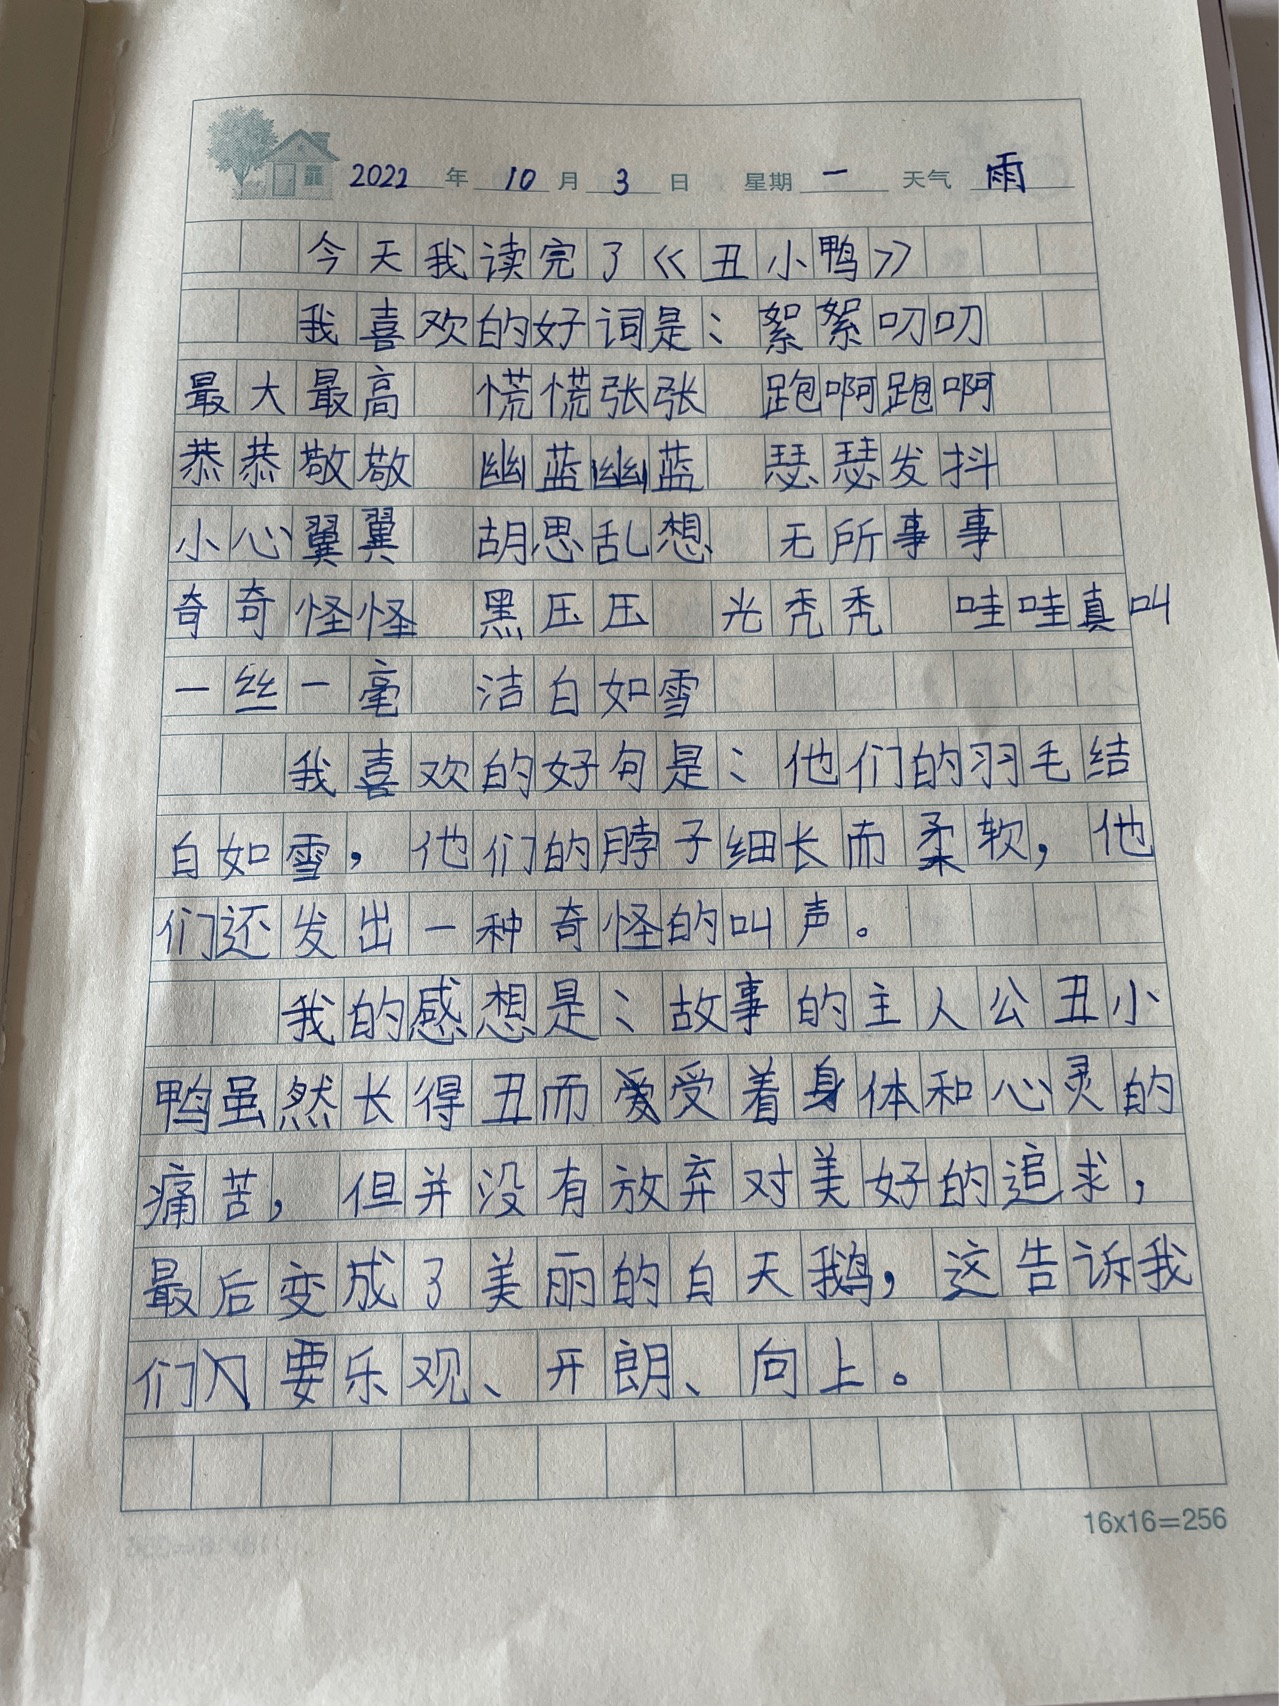 2022 年 10 月 3 日 星期 一 天气 雨
今天我读完了《丑小鸭》
我喜欢的好词是：絮絮叨叨
最大最高 慌慌张张 跑啊跑啊
恭恭敬敬 幽蓝幽蓝 瑟瑟发抖
小心翼翼 胡思乱想 无所事事
奇奇怪怪 黑压压 光秃秃 哇哇真叫
一丝一毫 洁白如雪
我喜欢的好句是：他们的羽毛结
白如雪，他们的脖子细长而柔软，他
们还发出一种奇怪的叫声。
我的感想是：故事的主人公丑小
鸭虽然长得丑而受着身体和心灵的
痛苦，但并没有放弃对美好的追求，
最后变成了美丽的白天鹅，这告诉我
们要乐观、开朗、向上。
16x16=256